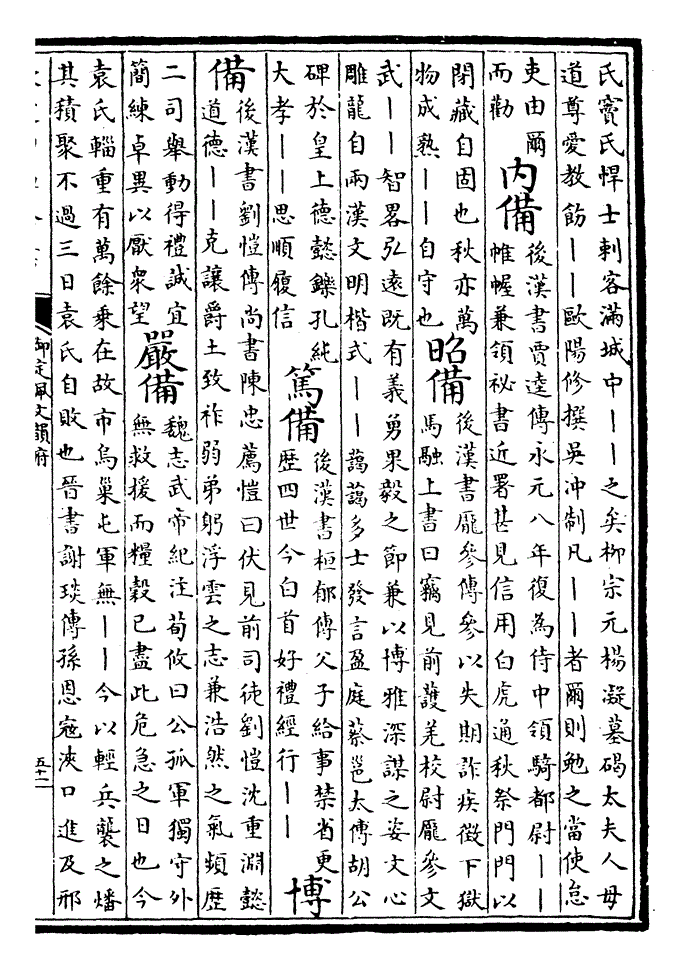 氏竇氏悍士刺客滿城中丨丨之矣柳宗元楊凝墓碣太夫人母
道尊愛教飭丨丨歐陽修撰吳冲制凡丨丨者爾則勉之當使怠
吏由爾
而勸
内備
後漢書賈逵傳永元八年復為侍中領騎都尉丨丨
帷幄兼領祕書近署甚見信用白虎通秋祭門門以
閉藏自固也秋亦萬
物成熟丨丨自守也
昭備
後漢書龐參傳參以失期詐疾徵下獄
馬融上書曰竊見前護羌校尉龐參文
武丨丨智畧弘遠既有義勇果毅之節兼以博雅深謀之姿文心
雕龍自兩漢文明楷式丨丨藹藹多士發言盈庭蔡邕太傅胡公
碑於皇上德懿鑠孔純
大孝丨丨思順履信
篤備
後漢書桓郁傳父子給事禁省更
歴四世今白首好禮經行丨丨
博
備
後漢書劉愷傳尚書陳忠薦愷曰伏見前司徒劉愷沈重淵懿
道德丨丨克讓爵土致祚弱弟躬浮雲之志兼浩然之氣頻歴
二司舉動得禮誠宜
簡練卓異以厭衆望
嚴備
魏志武帝紀注荀攸曰公孤軍獨守外
無救援而糧穀已盡此危急之日也今
袁氏輜重有萬餘乗在故市烏巢屯軍無丨丨今以輕兵襲之燔
其積聚不過三日袁氏自敗也晉書謝琰傳孫恩寇浹口進及邢
御定佩文韻府
五十二